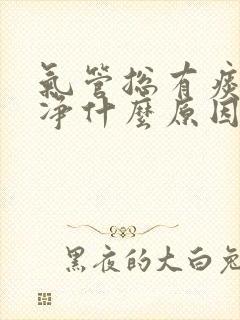 氣管總有痰
淨什麼原因
黑夜的大白兔